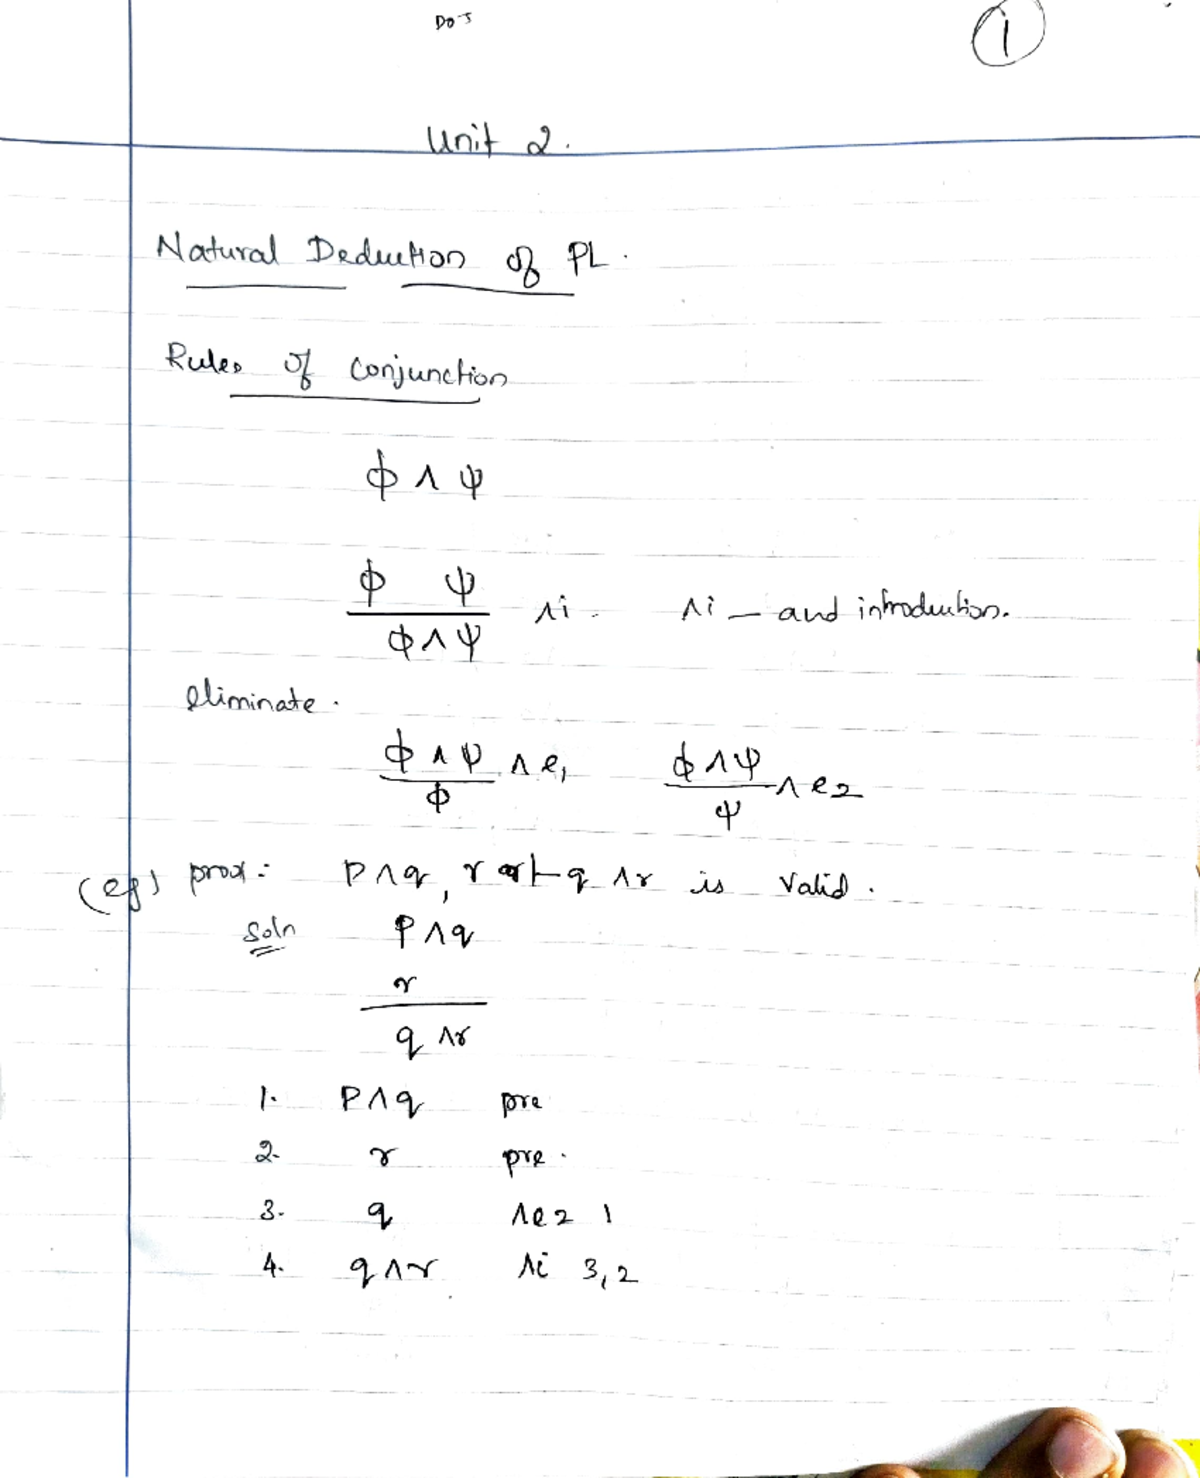 DOJ
1
Unit 2.
Natural Deduction of PL.
Rules of conjunction
ϕ ∧ ψ
ϕ ψ
∧i. ∧i – and introduction.
ϕ ∧ ψ
eliminate.
ϕ ∧ ψ ∧e1 ϕ ∧ ψ ∧e2
ϕ ψ
(eg) prove: P∧q, r ⊢ q ∧r is valid.
Soln P∧q
r
q ∧r
1. P∧q pre
2. r pre.
3. q ∧e2 1
4. q∧r ∧i 3,2